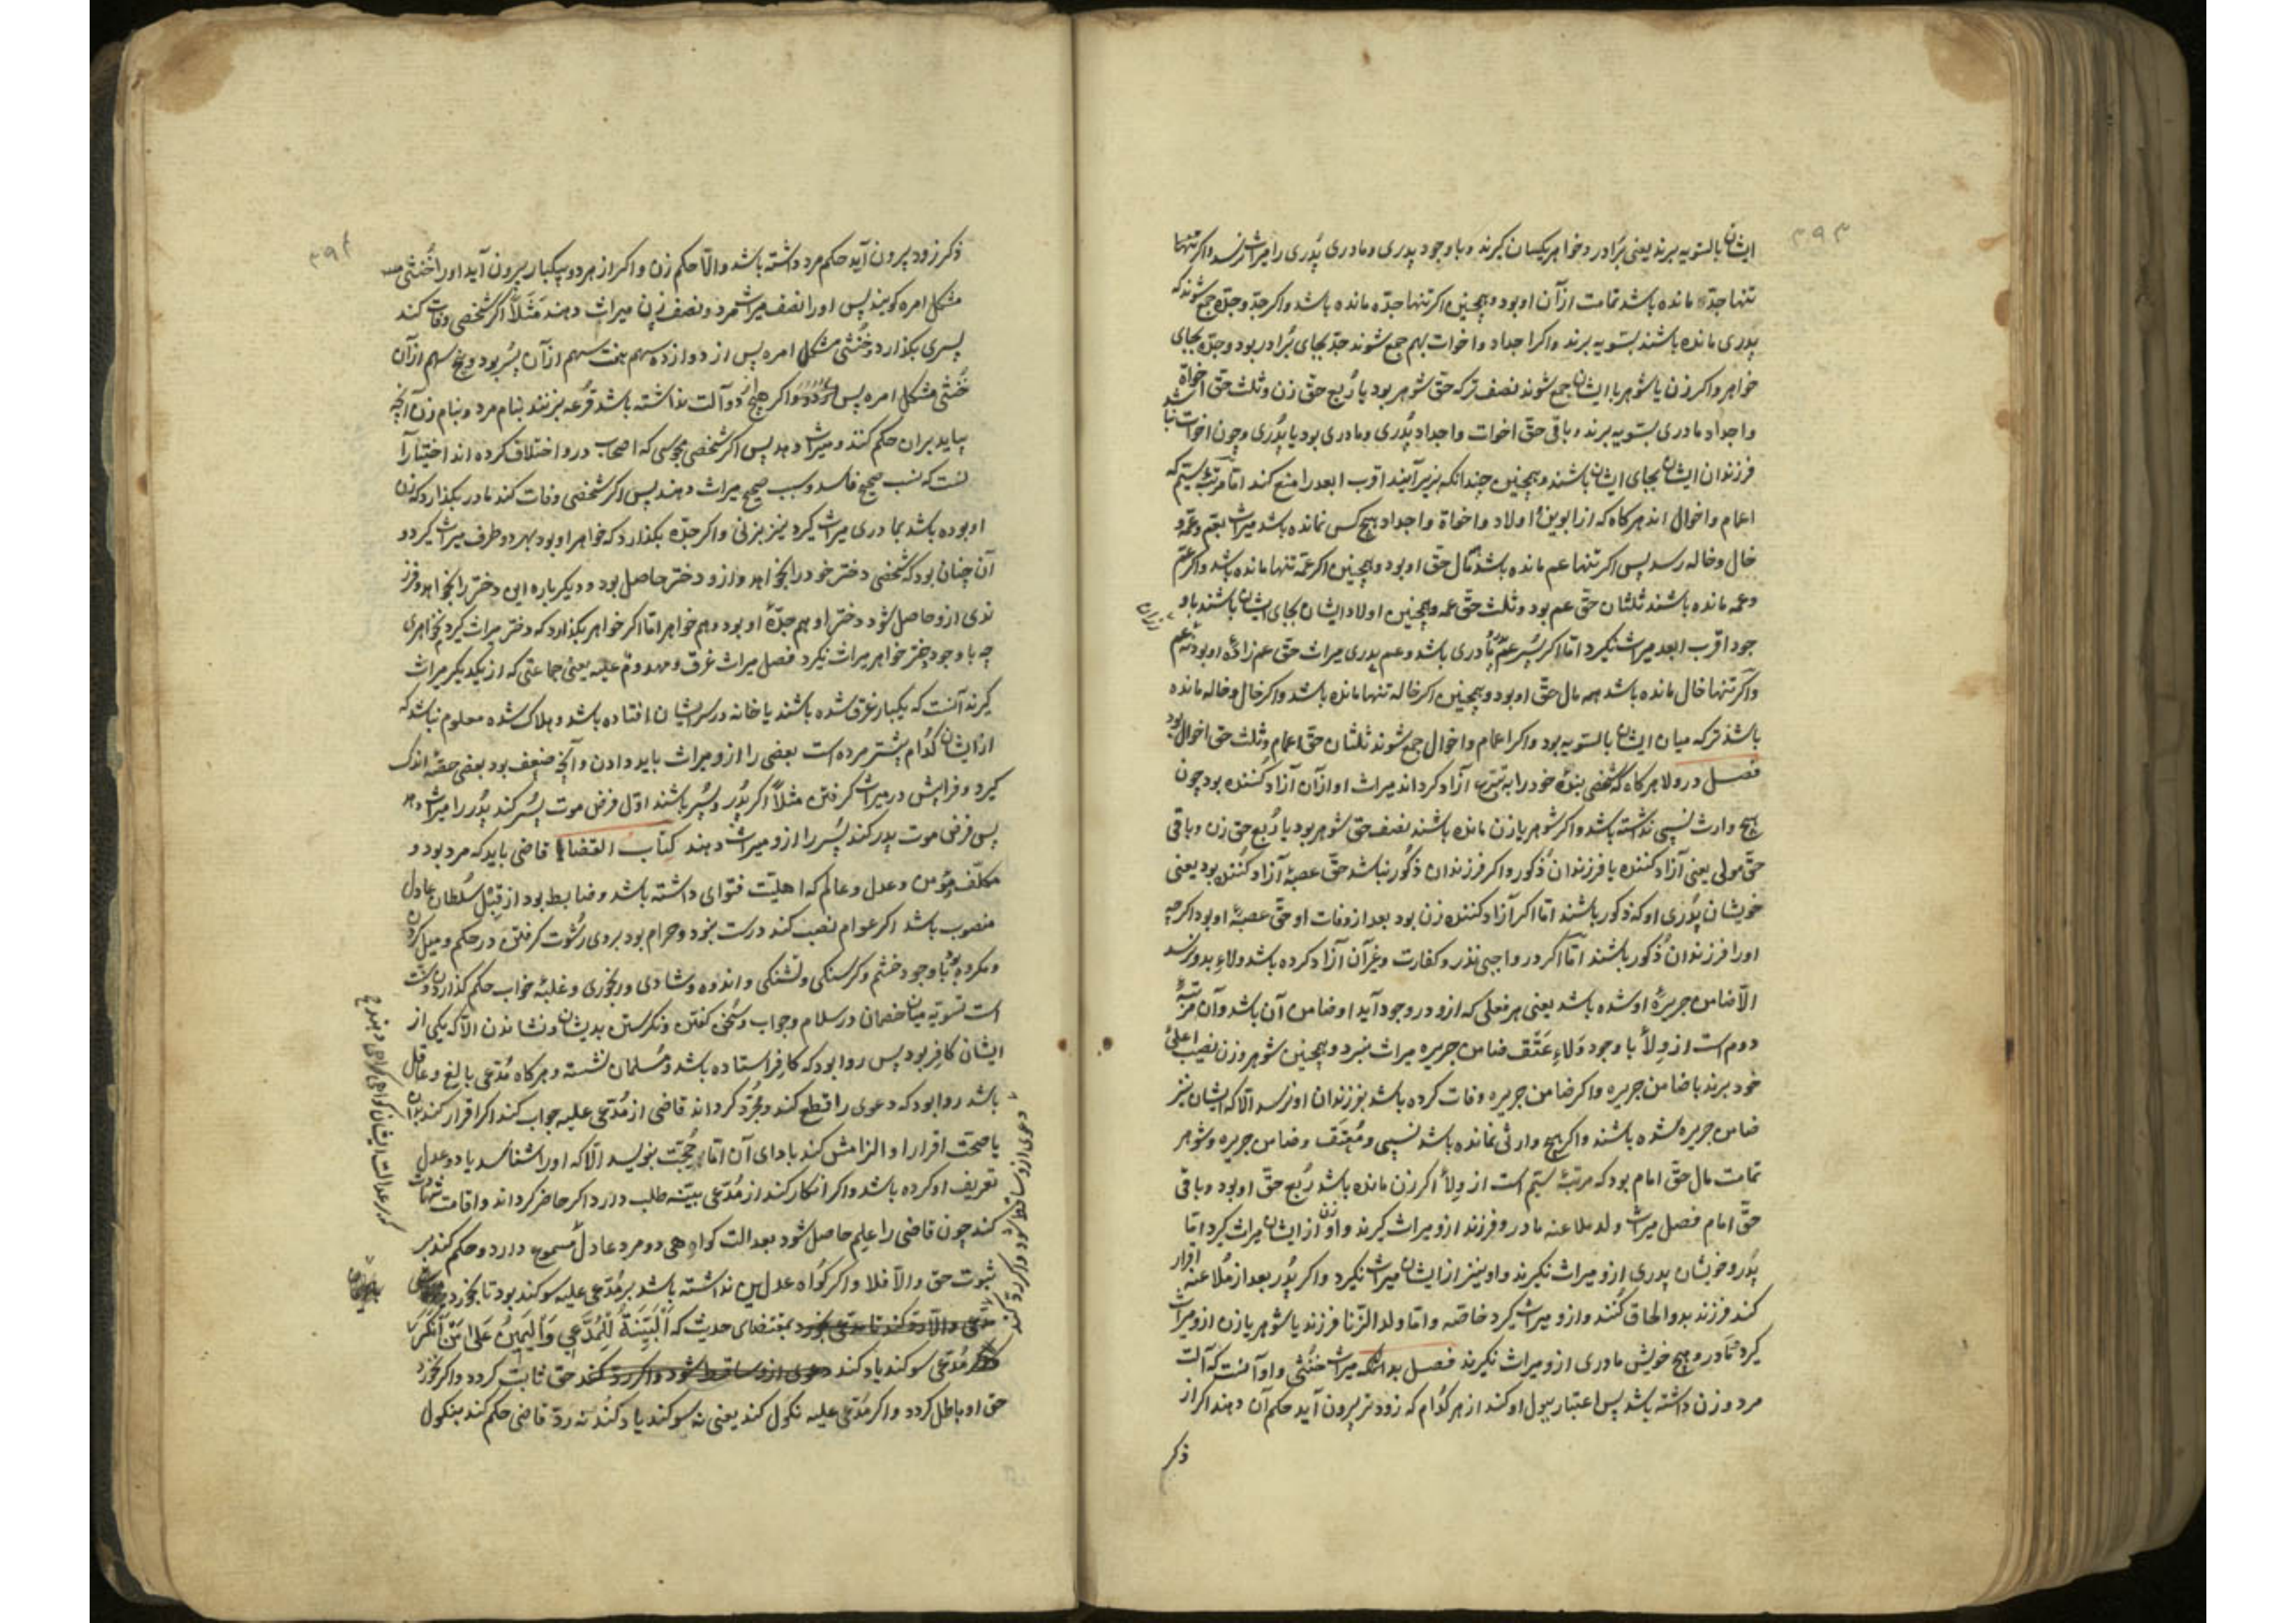 ٣٩٣
ایشان بالسویه برند یعنی برادر و خواهر یکسان گیرند و با وجود پدری و مادری پدری را میراث نرسد و اگر تنها
تنها جدّ مانده باشد تمامت از آن او بود و همچنین اگر تنها جدّه مانده باشد و اگر جدّ و جدّه جمع شوند که
پدری مانده باشند بسویه برند و اگر اجداد و اخوات بهم جمع شوند جدّ بجای برادر بود و جدّه بجای
خواهر و اگر زن یا شوهر با ایشان جمع شوند نصف ترکه حقّ شوهر بود یا رُبع حقّ زن و ثلث حقّ اخواة
و اجداد مادری بسویه برند و باقی حقّ اخوات و اجداد پدری و مادری بود یا پدری و چون اخوات نباشند
فرزندان ایشان بجای ایشان باشند و همچنین چندانکه بزیر آیند اقرب ابعد را منع کند امّا مرتبهٔ سیّم که
اعمام و اخوال اند هرگاه که از ابوین و اولاد و اخواة و اجداد هیچ کس نمانده باشد میراث بعّم و عمّه و
خال و خاله رسد پس اگر تنها عم مانده باشد مال حقّ او بود و همچنین اگر عمّه تنها مانده باشد و اگر عمّ
و عمه مانده باشند ثلثان حقّ عم بود و ثلث حقّ عمه و همچنین اولاد ایشان بجای ایشان باشند با و
جود اقرب ابعد میراث نگیرد امّا اگر پسر عمّ مادری باشد و عم پدری میراث حقّ عم زادهٔ او بود نه عم
و اگر تنها خال مانده باشد همه مال حقّ او بود و همچنین اگر خاله تنها مانده باشد و اگر خال و خاله مانده
باشد ترکه میان ایشان بالسویه بود و اگر اعمام و اخوال جمع شوند ثلثان حقّ اعمام و ثلث حقّ اخوال بود
فصل در ولا هرگاه که شخصی بندهٔ خود را به تبرّع آزاد گرداند میراث او از آن آزاد کننده بود چون
هیچ وارث نسبی نداشته باشد و اگر شوهر یا زن مانده باشند نصف حقّ شوهر بود یا رُبع حق زن و باقی
حقّ مولی یعنی آزاد کننده یا فرزندان ذُکور و اگر فرزندان ذکور نباشد حقّ عصبهٔ آزاد کننده بود یعنی
خویشان پدری او که ذکور باشند امّا اگر آزاد کننده زن بود بعد از وفات او حقّ عصبهٔ او بود اگرچه
او را فرزندان ذُکور باشند امّا اگر در واجبی نذر و کفارت و غیر آن آزاد کرده باشد ولاء بدو نرسد
الّا ضامن جریرهٔ او شده باشد یعنی هر فعلی که ازو در وجود آید او ضامن آن باشد و آن مرتبهٔ
دوم است از ولأ با وجود ولاءِ عِتق ضامن جریره میراث نبرد و همچنین شوهر و زن نصیب اعلیٰ
خود برند با ضامن جریره و اگر ضامن جریره وفات کرده باشد بفرزندان او نرسد الّا که ایشان نیز
ضامن جریره شده باشند و اگر هیچ وارثی نمانده باشد نسبی و مُعتِق و ضامن جریره و شوهر
تمامت مال حقّ امام بود که مرتبهٔ سیّم است از ولأ اگر زن مانده باشد رُبع حقّ او بود و باقی
حقّ امام فصل میراث ولد ملاعنه مادر و فرزند ازو میراث گیرند و او نیز از ایشان میراث گیرد امّا
پدر و خویشان پدری ازو میراث نگیرند و او نیز از ایشان میراث نگیرد و اگر پدر بعد از مُلاعنه اقرار
کند فرزند بدو الحاق کُنند و ازو میراث گیرد خاصّه و امّا ولد الزّنا فرزند یا شوهر یا زن ازو میراث
گیرد مادر و هیچ خویش مادری ازو میراث نگیرند فصل بدانکه میراث خُنثی و او آنست که آلت
مرد و زن داشته باشد پس اعتبار ببول او کند از هر کدام که زودتر بیرون آید حکم آن دهند اگر از
ذکر
٣٩٤
ذکر زود بیرون آید حکم مرد داشته باشد و الّا حکم زن و اگر از هر دو بیکبار بیرون آید او را خُنثی
مشکل امره گویند پس او را نصف میراث مرد و نصف زن میراث دهند مثلاً اگر شخصی وفات کند
پسری بگذارد و خُنثی مشکل امره پس از دوازده سهم هفت سهم از آن پسر بود و پنج سهم از آن
خُنثی مشکل امره پس اگر هیچ از دو آلت نداشته باشد قُرعه بزنند بنام مرد و بنام زن آنچه
بیاید بران حکم کنند و میراث دهد پس اگر شخصی مجوسی که اصحاب درو اختلاف کرده اند اختیار آ
نست که نسب صحیح فاسد و سبب صحیح میراث دهند پس اگر شخصی وفات کند مادر بگذارد که زن
او بوده باشد بمادری میراث گیرد نیز بزنی و اگر جدّه بگذارد که خواهر او بود بهر دو طرف میراث گیرد و
آن چنان بود که شخصی دختر خود را بخواهد و ازو دختر حاصل بود و دیگر باره این دختر را بخواهد و فرز
ندی ازو حاصل شود دختر او هم جدّهٔ او بود و هم خواهر امّا اگر خواهر بگذارد که دختر میراث گیرد نخواهری
چه با وجود دختر خواهر میراث نگیرد فصل میراث غرق و مهدوم علیه یعنی جماعتی که از یکدیگر میراث
گیرند آنست که بیکبار غرق شده باشند یا خانه در سر ایشان افتاده باشد و هلاک شده معلوم نباشد که
از ایشان کدُام پیشتر مرده است بعضی را ازو میراث باید دادن و آنچه ضعیف بود بعضی حصّهٔ اندک
گیرد و فرایش در میراث گرفتن مثلاً اگر پدُر و پسُر باشند اوّل فرض موت پسُر کند پدُر را میراث دهد
پس فرض موت پدر کند پسُر را ازو میراث دهند کتاب القضا قاضی باید که مرد بود و
مکلّف و مؤمن و عدل و عالم که اهلیّت فتوای داشته باشد و ضابط بود از قِبَل سُلطان عادل
منصوب باشد اگر عوام نصب کند درست نبود و حرام بود بروی رشوت گرفتن در حکم و میل کردن
و مکروه بود با وجود خشم و گرسنگی و تشنگی و اندوه و شادی و رنجوری و غلبهٔ خواب حکم گذاردن و سنّت
است تسویة میان خصمان در سلام و جواب و سُخن گفتن و نگرستن بدیشان و نشاندن الّا که یکی از
ایشان کافِر بود پس روا بود که کافر استاده باشد و مُسلمان نشسته و هرگاه مُدّعی بالِغ و عاقل
باشد روا بود که دعوی را قطع کند و مجُرّد گرداند قاضی از مُدّعی علیه جواب کند اگر اقرار کند بدان
با صحّت اقرار او الزامش کند بادای آن امّا حُجّت ننویسد الّا که او را شناسد یا دو عدل
تعریف او کرده باشد و اگر انکار کند از مُدّعی بیّنه طلب دارد اگر حاضر گرداند و اقامت شهادت
کند چون قاضی را علِم حاصل شود بعدالت گواهی دو مرد عادل مسموع دارد و حکم کند بر
ثبوت حق و الّا فلا و اگر گواه عدلین نداشته باشد بر مُدّعی علیه سوگند بود تا بخورد
بمقتضای حدیث که اَلبَیِّنَةُ لِلمُدَّعِی وَالیَمِینُ عَلیٰ مَن اَنکَرَ
مُدّعی سوگند یاد کند دعوی ازو ساقط شود و اگر ردّ کند حق ثابت گردد و اگر نخورد
حق او باطل گردد و اگر مُدّعی علیه نکول کند یعنی نه سوگند یاد کند نه ردّ قاضی حکم کند بنکول
دعوی ازو ساقط شود و اگر ردّ کند
که بر عدالت ایشان گواهی